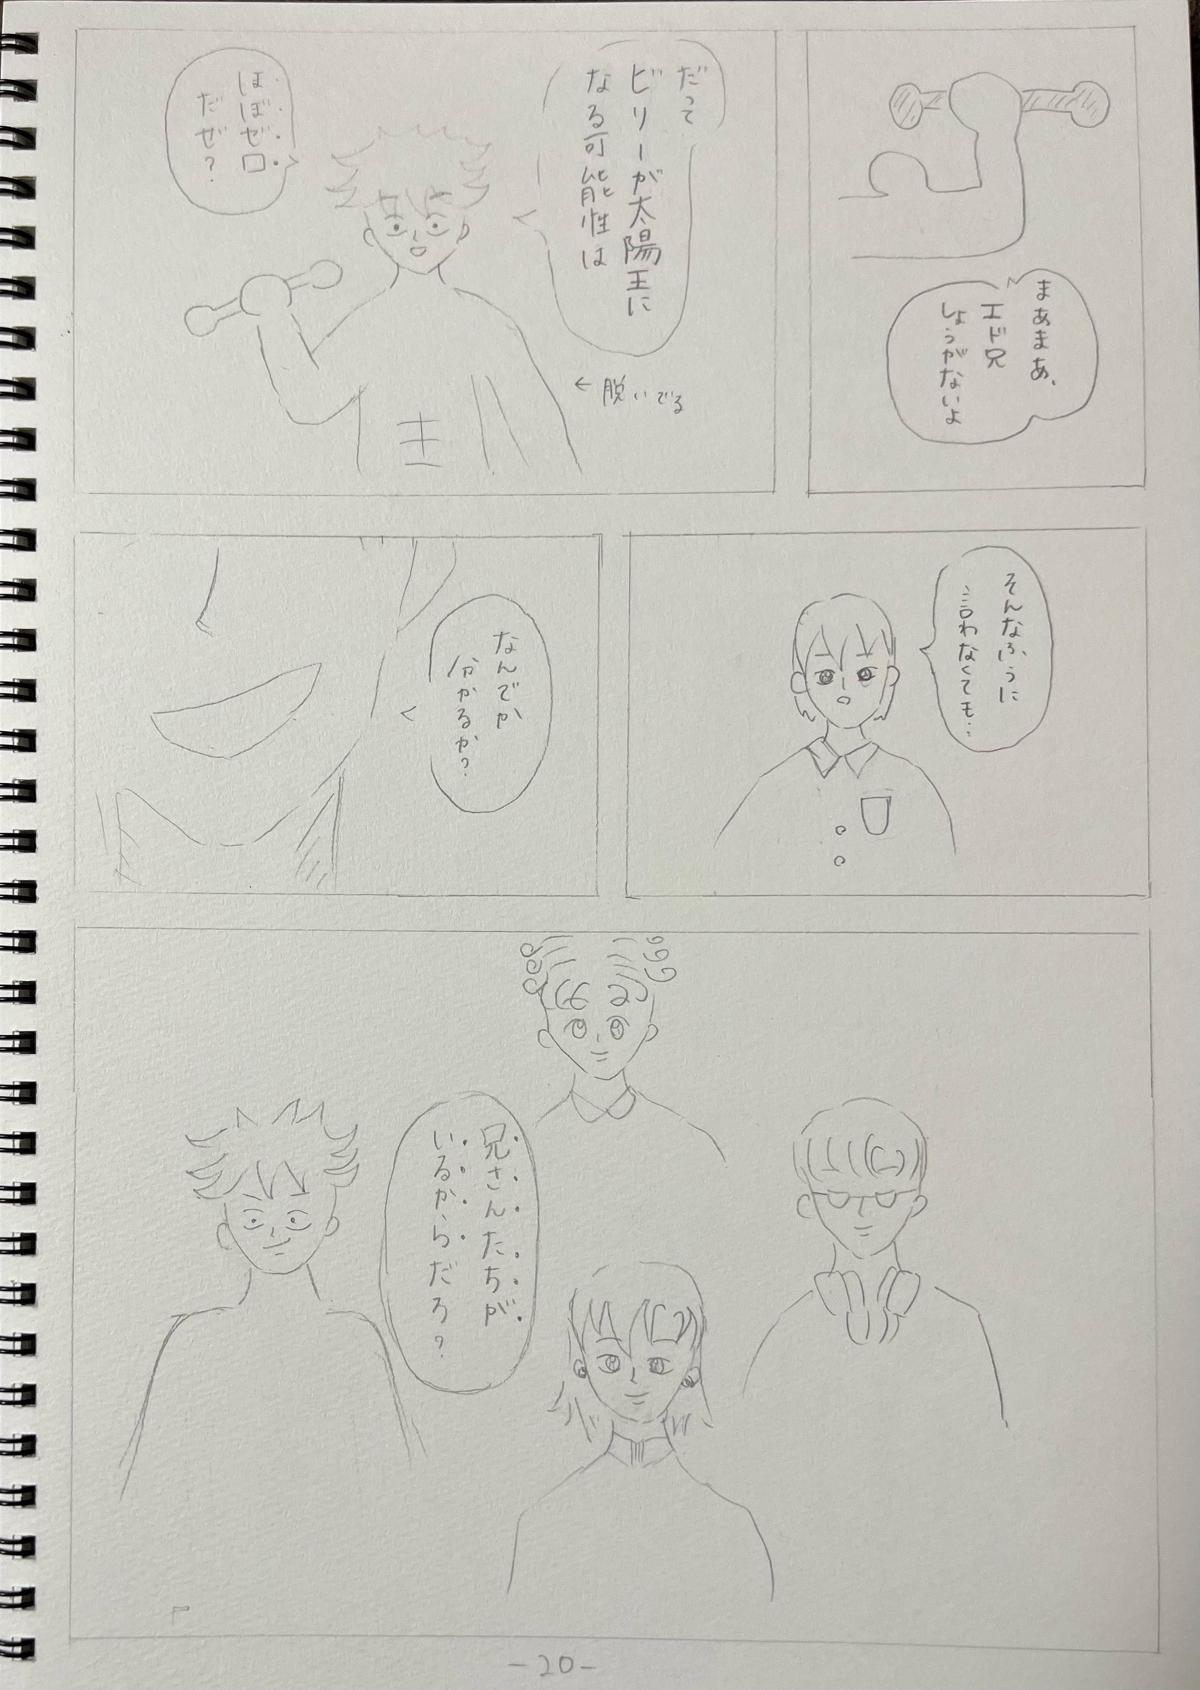 まあまあ、
エド兄
しょうがないよ
だって
ビリーが太陽王に
なる可能性は
ほぼゼロ
だぜ?
←脱いでる
そんなふうに
言わなくても…
なんでか
分かるか?
兄さんたちが
いるからだろ?
-20-